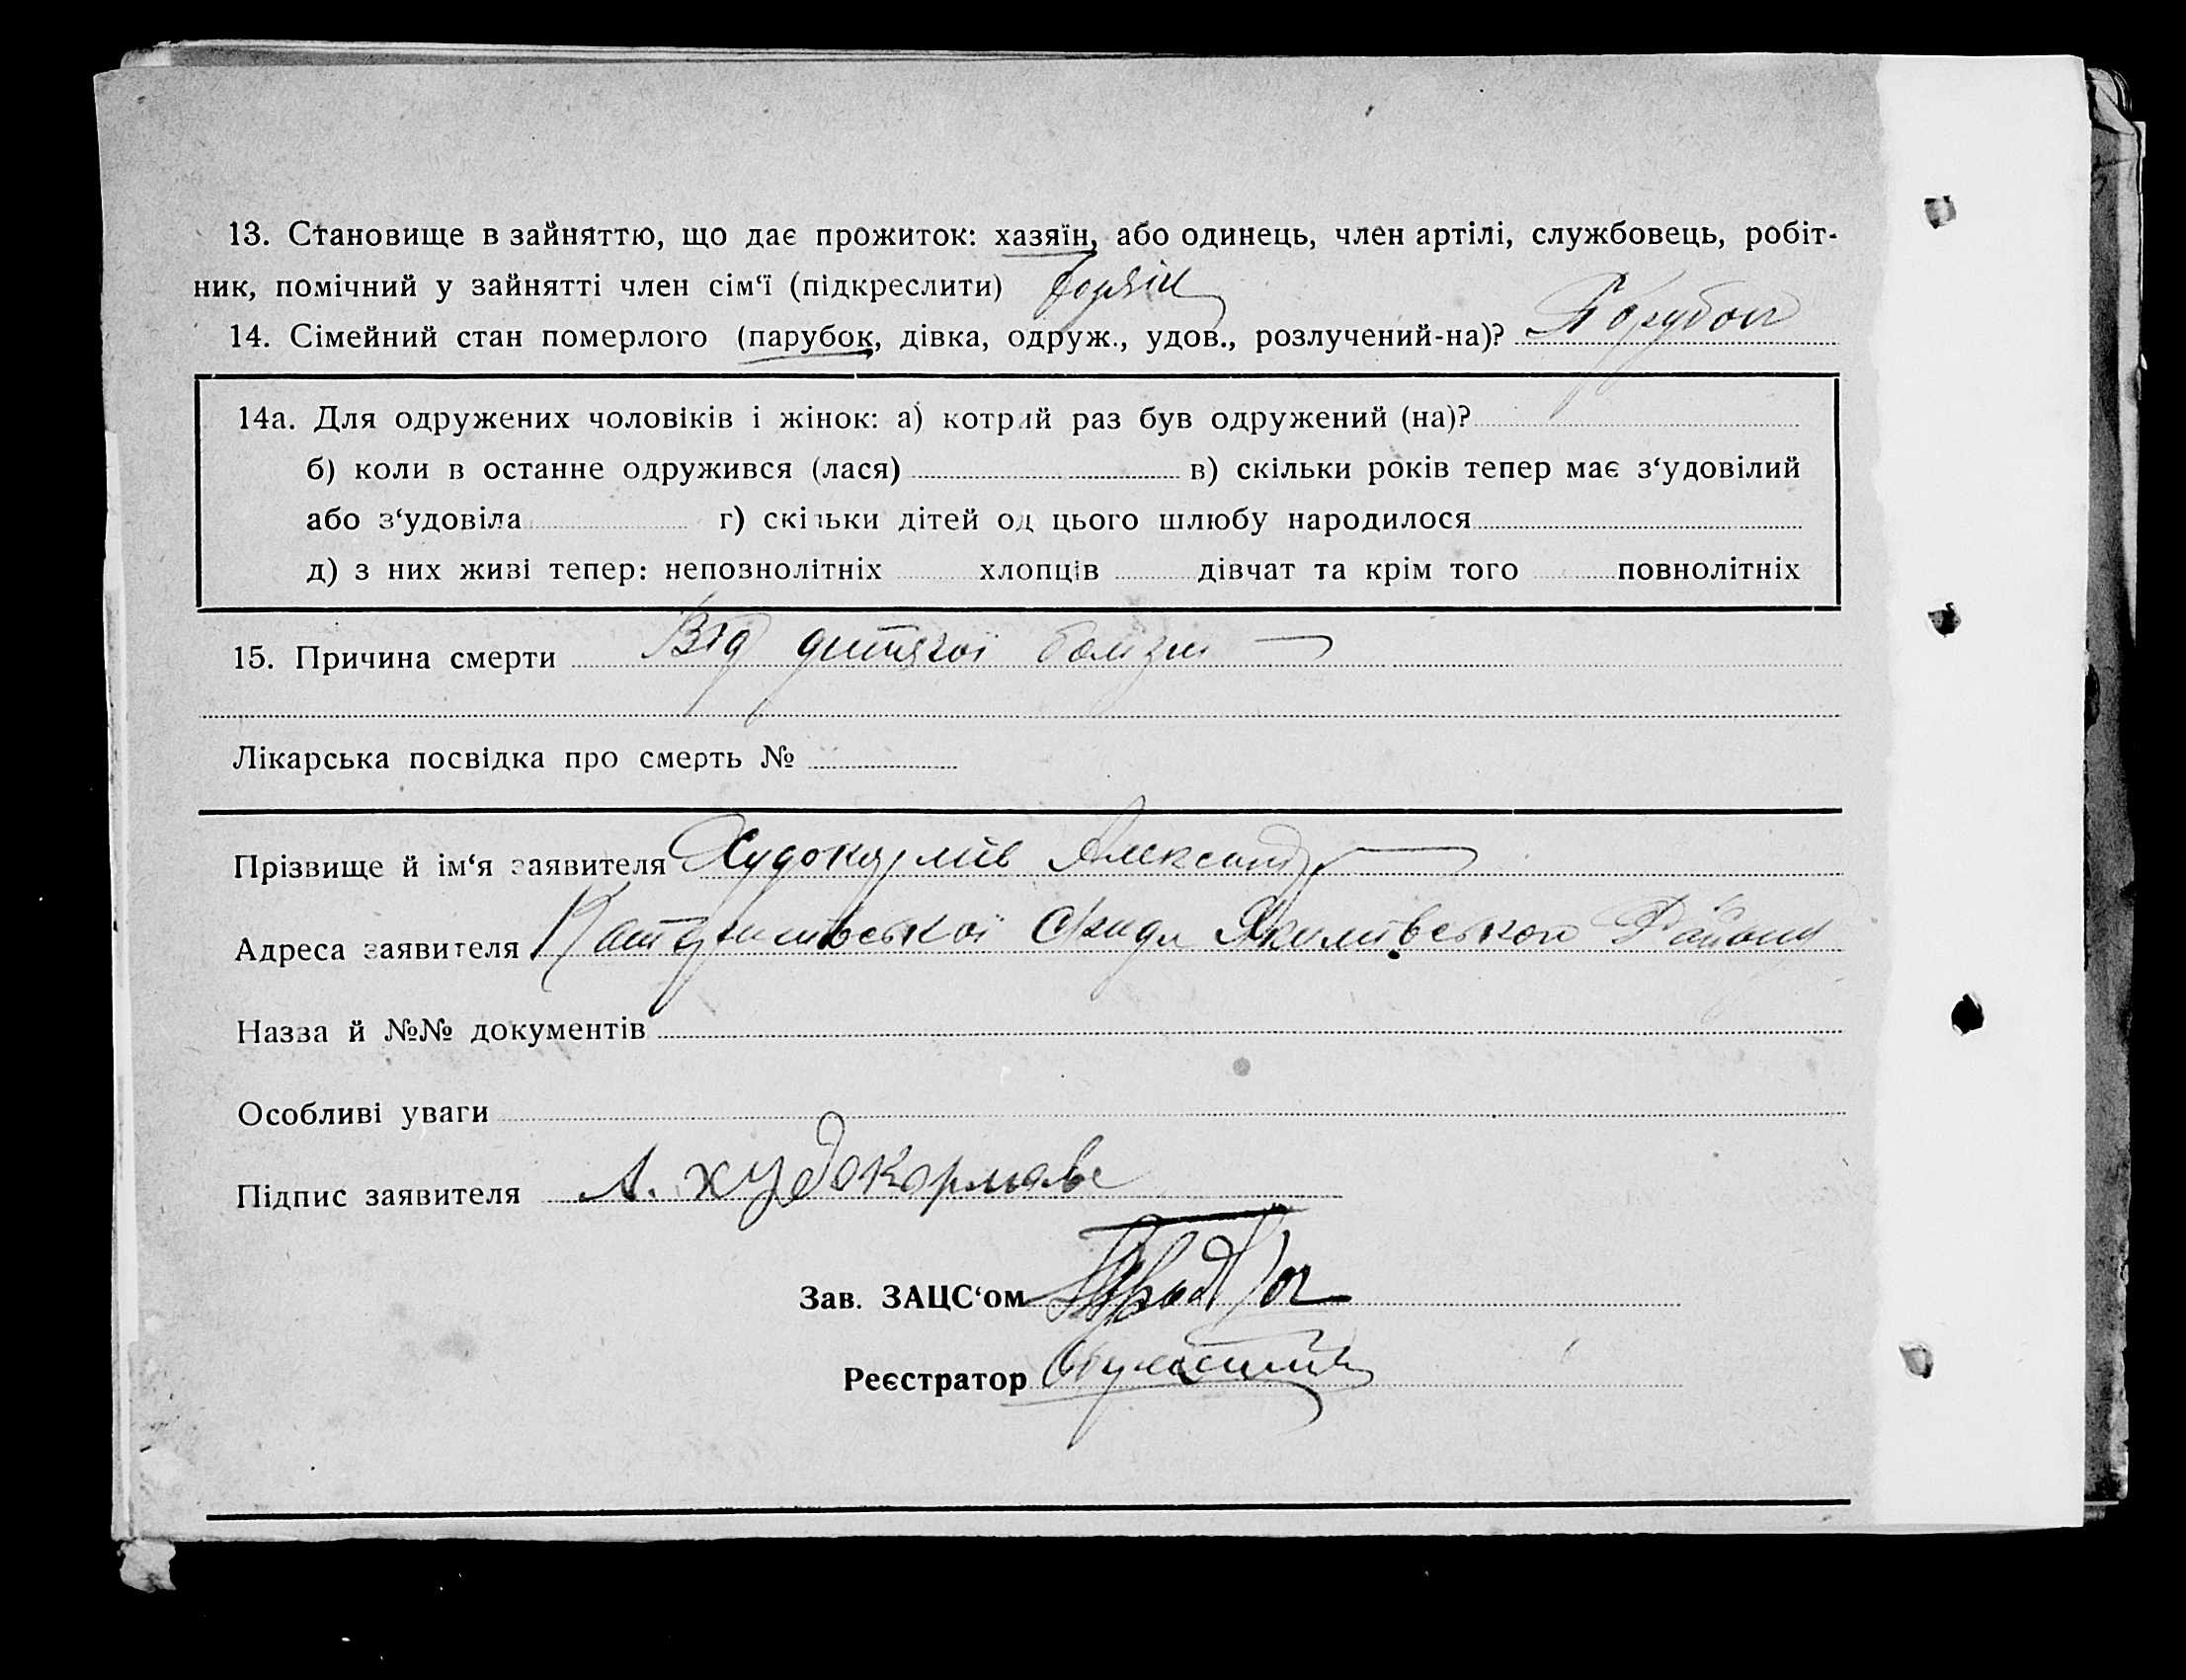 13. Становище в зайняттю, що дає прожиток: хазяїн, або одинець, член артілі, службовець, робіт-
ник, помічний у зайнятті член сім‘ї (підкреслити)
14. Сімейний стан померлого (парубок, дівка, одруж., удов., розлучений-на)? Порубок
14а. Для одружених чоловіків і жінок: а) котрий раз був одружений (на)?
б) коли в останнє одружився (лася) в) скільки років тепер має з‘удовілий
або з‘удовіла г) скільки дітей од цього шлюбу народилося
д) з них живі тепер: неповнолітніх хлопців дівчат та крім того повнолітніх
15. Причина смерти Від дитячої болізни
Лікарська посвідка про смерть №
Прізвище й ім‘я заявителя Худокормів Александр
Адреса заявителя С/ради Якимівського Району
Назва й №№ документів
Особливі уваги
Підпис заявителя А. Худокормове
Зав. ЗАЦС‘ом
Реєстратор